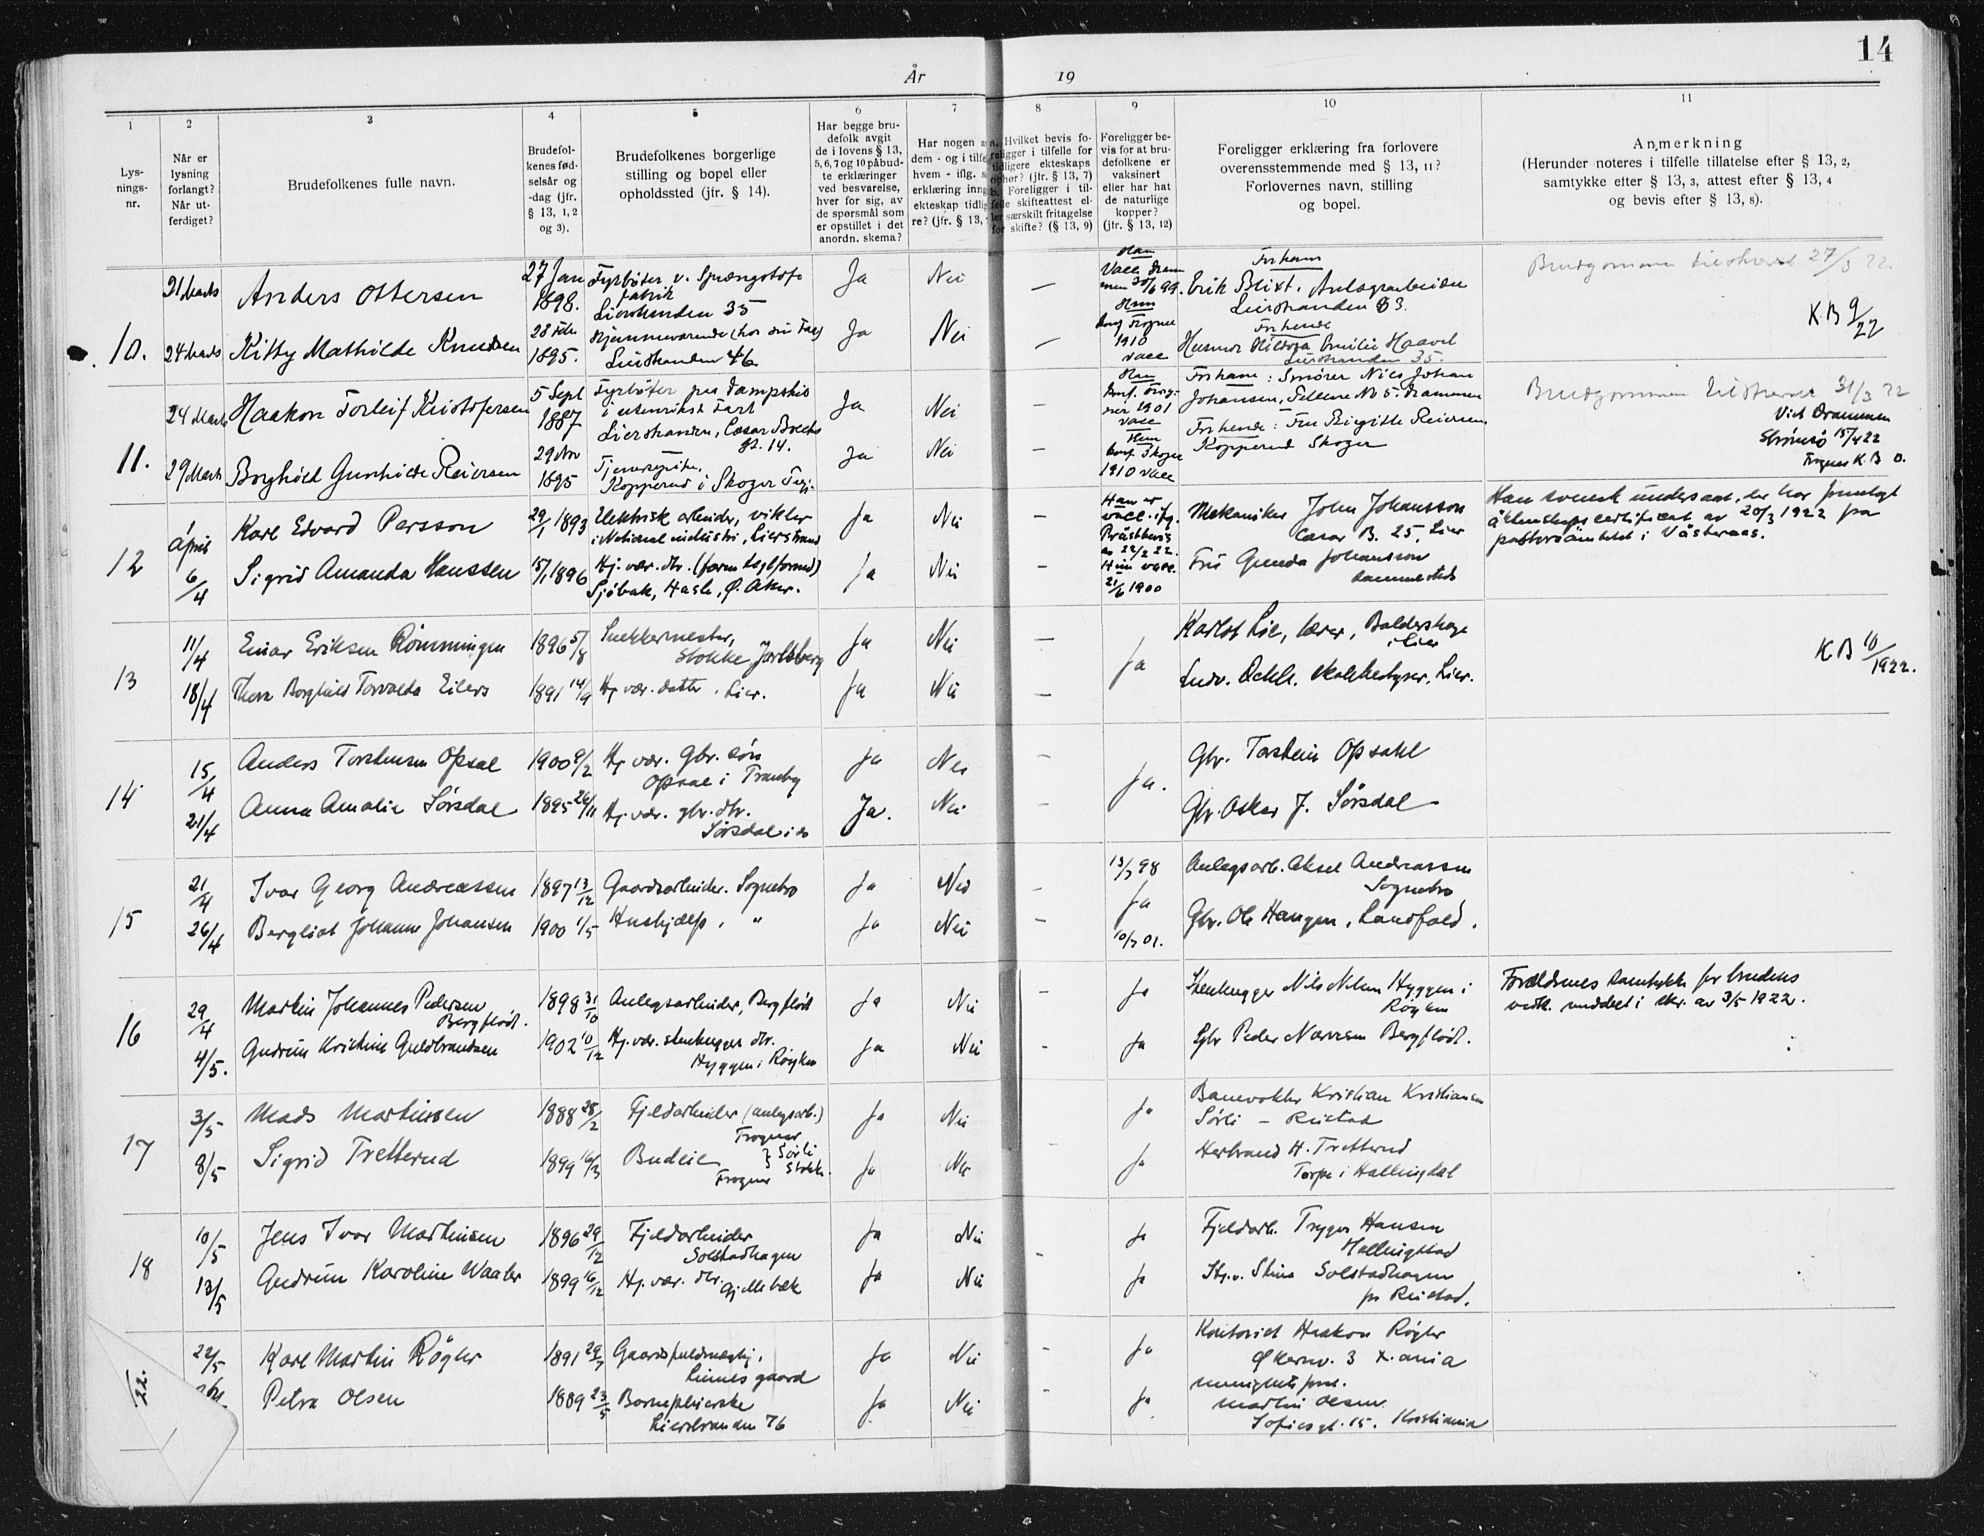 14
År 19
1
Lys-
nings-
nr.
2
Når er
lysning
forlangt?
Når ut-
ferdiget?
3
Brudefolkenes fulle navn.
4
Brudefol-
kenes fød-
selsår og
-dag (jfr.
§ 13, 1, 2
og 3).
5
Brudefolkenes borgerlige
stilling og bopel eller
opholdssted (jfr. § 14).
6
Har begge bru-
defolk avgit
de i lovens § 13,
5, 6, 7 og 10 påbud-
te erklæringer
ved besvarelse,
hver for sig, av
de spørsmål som
er opstillet i det
anordn. skema?
7
Har nogen a
dem - og i tilfe
hvem - iflg. s
erklæring inng
ekteskap tidlig
re? (jfr. § 13,
8
a. Hvilket bevis fo-
religger i tilfelle for
tidligere ekteskaps
ophør? (jfr. § 13, 7)
b. Foreligger i til-
felle skifteattest el-
ler særskilt fritagelse
for skifte? (§ 13, 9)
9
Foreligger be-
vis for at bru-
defolkene er
vaksinert
eller har hat
de naturlige
kopper?
(jfr. § 13, 12)
10
Foreligger erklæring fra forlovere
overensstemmende med § 13, 11?
Forlovernes navn, stilling
og bopel.
11
Anmerkning
(Herunder noteres i tilfelle tillatelse efter § 13, 2,
samtykke efter § 13, 3, attest efter § 13, 4
og bevis efter § 13, 8).
10.
21 Marts Anders Ottersen 27 Jan 1898. Fyrbøter v. Sprængstofs
fabrik
Lierstranden 35 Ja Nei — Han Vacc. Dram
men 30/6 99. For ham
Erik Blixt. Anlægsarbeider
Lierstranden 83. Brudgommen tilstanden 27/3 22
24 Marts Kitty Mathilde Knudsen 28 Feb 1895. Hjemmeværende (hos sin Far)
Lierstranden 46 Ja Nei — Hun
Konf Frogner
1910
vacc For hende
Husmor Hildora Emilie Haavel
Lierstranden 35. K.B 9/22
11.
24 Marts Haakon Torleif Kristofersen 5 Sept 1887 Fyrbøter paa Dampskib
i utenriksk Fart
Lierstranden, Cæsar Bachs
gt. 14. Ja Nei — Han
Konf. Frog-
ner 1901
vacc For ham: Smører Nils Johan
Johansen, Tollbu No 5. Drammen 31/3 22
29 Marts Borghild Gunhilde Reiersen 29 Nov 1895 Tjenestepike,
Kopperud i Skoger Ja Nei — Hun
Konf. Skoger
1910 vacc For hende: Fru Birgitte Reiersen
Kopperud Skoger Viet Drammen
Strømsø 15/4 22
Frogner K.B 0.
12
April Karl Edvard Persson 29/1 1893 Elektrisk arbeider, vikler
i National industri, Lierstrand Ja Nei — Han er
vacc. ifg.
Prästbevis
av 22/2 22. Mekaniker John Johansson
Cæsar B. 25, Lier Han svensk undersaat, der har fremlagt
äktenskapscertificat av 20/3 1922 fra
pastorsämbetet i Västeraas.
6/4 Sigrid Amanda Hanssen 15/1 1896 Hj. vær. dtr.
Sjøbak, Hasle, Ø. Aker. Ja Nei — Hun vacc.
21/6 1900 Fru Gunda Johansson
sammesteds
13
11/4 Einar Eriksen Rømmingen 1896 5/8 Snekkermester,
Stokke Jarlsberg Ja Nei — Ja Karlot Lie, lærer, Baldershage
i Lier K B 10/1922.
18/4 Thora Borghild Torvalda Eilers 1891 14/9 Hj. vær. datter, Lier. Ja Nei — Ludv. Lier.
14
15/4 Anders Torsteinsen Opsal 1900 9/2 Hj. vær. gbr. søn
Opsal i Tranby Ja Nei — Ja. Gbr. Torstein Opsahl
21/4 Anna Amalie Sørsdal 1895 26/11 Hj. vær. gbr. dtr.
Sørsdal i ds Ja. Nei — Gbr. Oskar J. Sørsdal
15
21/4 Ivar Georg Andreassen 1897 13/12 Gaardsarbeider. Sognebro Ja Nei — 13/7 98 Anlegsarb. Aksel Andreassen
Sognebro
26/4 Bergliot Johanne Johansen 1900 1/5 Hushjælp. " Ja Nei — Ja
10/7 01. Gbr. Ole Haugen, Landfald.
16
29/4 Martin Johannes Pedersen
Bergflødt. 1898 31/10 Anlegsarbeider, Bergflødt Ja Nei — Ja Stenhugger Nils Nilsen Hyggen i
Røyken Foreldrenes samtykke for brudens
vedk. meddelt i skr. av 3/5 1922.
4/5. Gudrun Kristine Guldbrandsen 1902 10/12 Hj. vær. stenhugger dtr.
Hyggen i Røyken Ja Nei - Ja Gbr Peder Narvesen Bergflødt.
17
3/5 Mads Martinsen 1888 28/2 Fjeldarbeider (anlegsarb.)
Frogner Ja Nei Ja Banevokter Kristian Kristiansen
Sørli – Reistad
8/5 Sigrid Tretterud 1899 16/3 Budeie
Frogner } Sørli Ja Nei - Ja Herbrand H. Tretterud
Torpe i Hallingdal
18
10/5 Jens Ivar Martinsen 1896 29/12 Fjeldarbeider
Solstadhagen Ja Nei Ja Fjeldarb. Trygve Hansen
Hallingstad
13/5 Gudrun Karoline Waaler 1899 16/12 Hj. vær. dtr.
Gjellebæk Ja Nei - Ja Stina Solstadhagen
pr Reistad.
22.
22/5 Karl Martin Røgler 1891 29/7 Gaardsfuldmegtig,
Linnes gaard Ja Nei - Ja Kontorist Haakon Røgler
Økernv. 3 X.ania
Petra Olsen 1889 23/5 Barnepleierske
Lierstranden 76 Ja Nei Ja Martin Olsen
Sofiesgt. 15. Kristiania